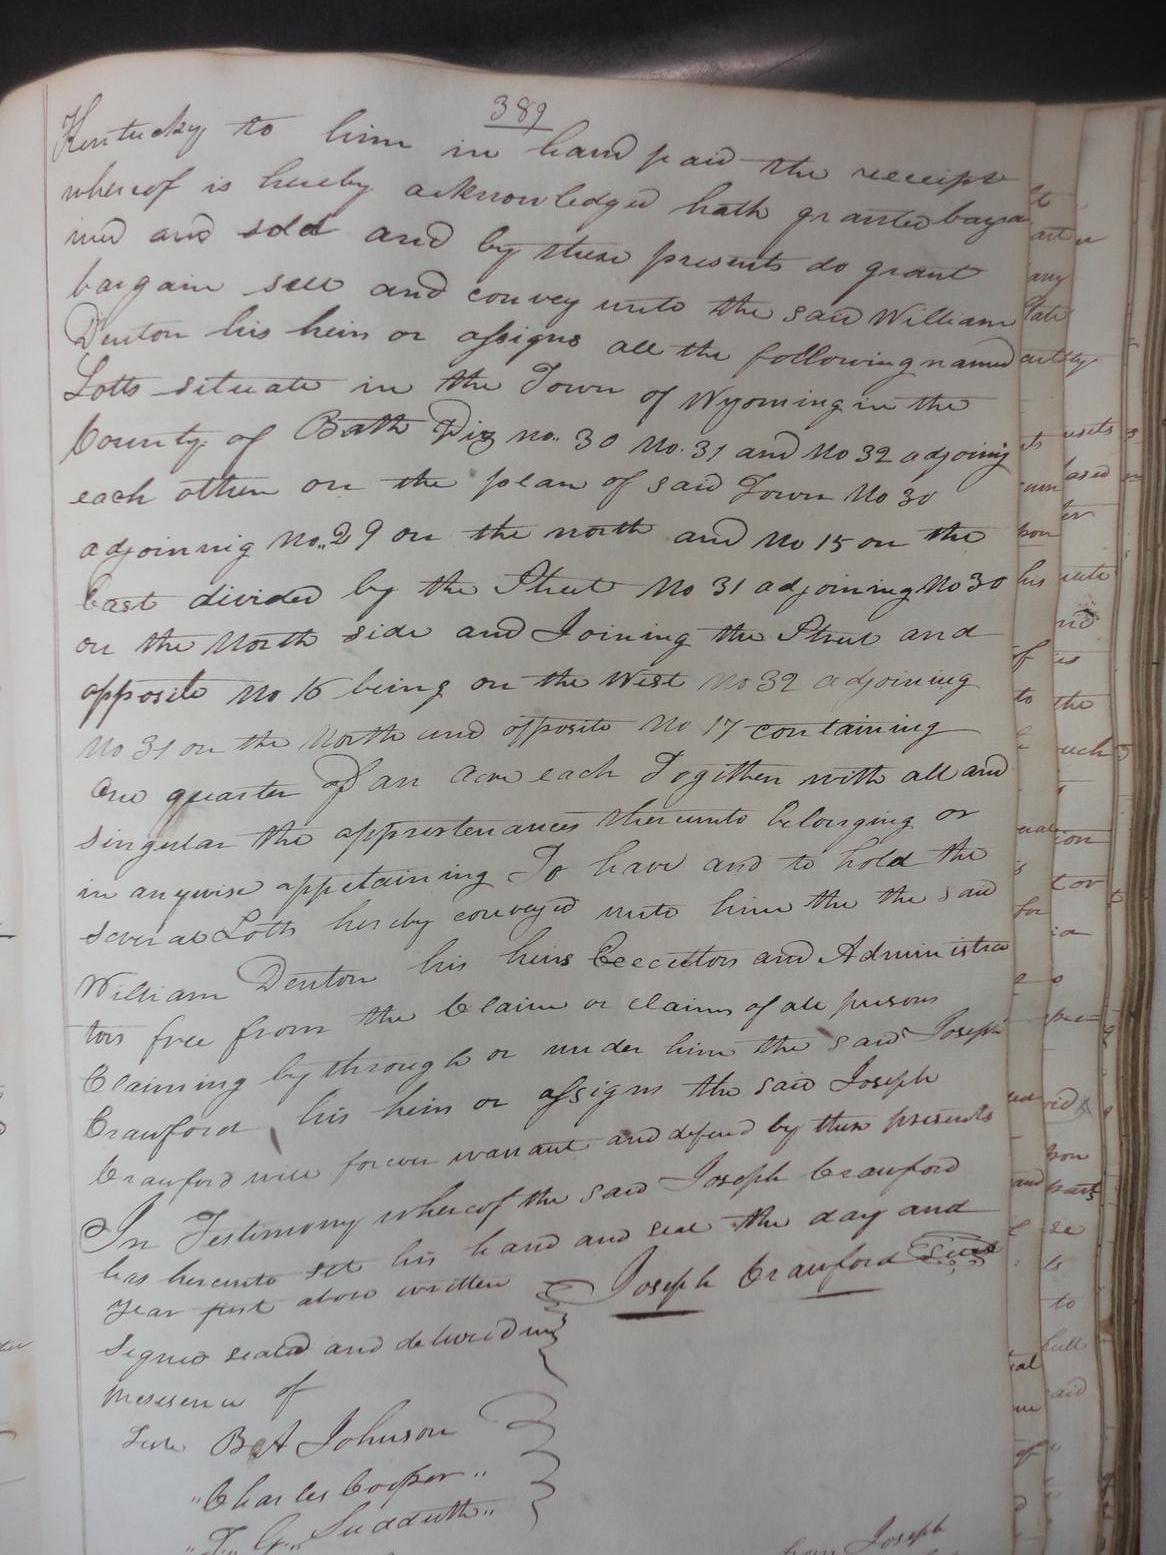 389
Kentucky to him in hand paid the receipt
whereof is hereby acknowledged hath granted barga
ined and sold and by these presents do grant
bargain sell and convey unto the said William
Denton his heirs or assigns all the following named
Lotts situate in the Town of Wyoming in the
County of Bath Viz no. 30 No. 31 and No 32 adjoining
each other on the plan of said Town No 30
adjoinnig No. 29 on the north and No 15 on the
East divided by the Street No 31 adjoining No 30
on the North side and Joining the Street and
opposite No 16 being on the West No 32 adjoining
No 31 on the North and opposite No 17 containing
One quarter of an Acre each Together with all and
singular the appurtenances thereunto belonging or
in anywise appetaining To have and to hold the
several Lotts hereby conveyed unto him the the said
William Denton his heirs Executors and Administra
tors free from the Claim or claims of all persons
Claiming by through or under him the said Joseph
Crawford his heirs or assigns the said Joseph
Crawford will forever warrant and defend by these presents
In Testimony whereof the said Joseph Crawford
has hereunto set his hand and seal the day and
year first above written Joseph Crawford Seal
Signed sealed and delivered in
presence of
Teste B A Johnson
"Charles Cooper"
"T. G. Sudduth"
from Joseph